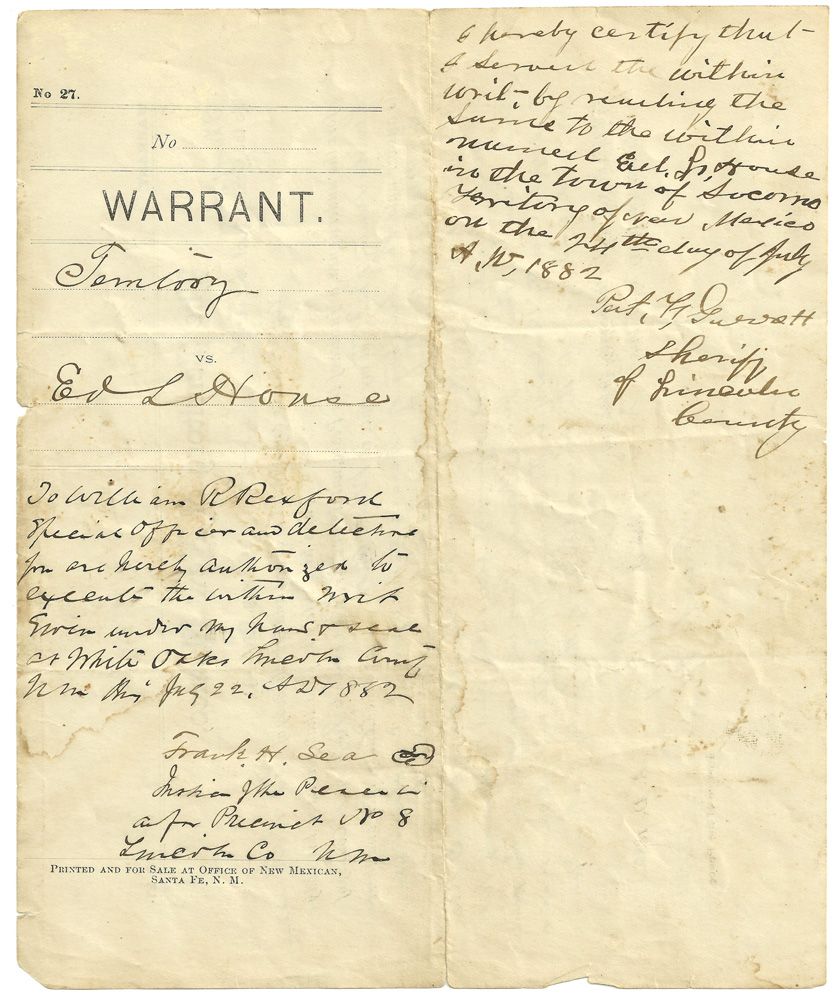 No 27.
No
WARRANT.
Territory
vs.
Ed L House
To William R Rexford
Special Officer and detective
you are hereby authorized to
execute the within writ
Given under my hand & seal
at White Oaks Lincoln County
NM this July 22, AD 1882
Frank H. Lea
Justice of the Peace in
a for Precinct No 8
Lincoln Co NM
PRINTED AND FOR SALE AT OFFICE OF NEW MEXICAN,
SANTA FE, N. M.
I hereby certify that
I served the within
writ, by reading the
same to the within
named Ed. L. House
in the town of Socorro
Territory of new Mexico
on the 24th day of July
A.D, 1882
Pat. F, Garrett
Sheriff
of Lincoln
County